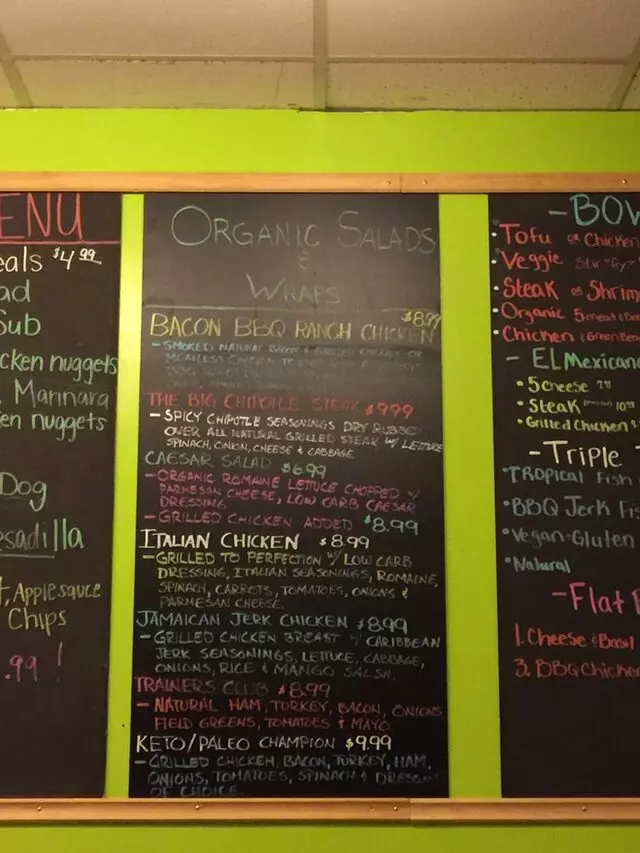 ENU
eals $4.99
ad
Sub
cken nuggets
Marinara
en nuggets
Dog
esadilla
Applesauce
Chips
.99 !
ORGANIC SALADS
&
WRAPS
BACON BBQ RANCH CHICKEN $8.99
- SMOKED NATURAL BACON & GRILLED CHICKEN OR
THE BIG CHIPOTLE STEAK $9.99
- SPICY CHIPOTLE SEASONINGS DRY RUBBED
OVER ALL NATURAL GRILLED STEAK W/ LETTUCE
SPINACH, ONION, CHEESE & CABBAGE
CAESAR SALAD $6.99
- ORGANIC ROMAINE LETTUCE CHOPPED W/
PARMESAN CHEESE, LOW CARB CAESAR
DRESSING
- GRILLED CHICKEN ADDED $8.99
ITALIAN CHICKEN $8.99
- GRILLED TO PERFECTION W/ LOW CARB
DRESSING, ITALIAN SEASONINGS, ROMAINE,
SPINACH, CARROTS, TOMATOES, ONIONS &
PARMESAN CHEESE.
JAMAICAN JERK CHICKEN $8.99
- GRILLED CHICKEN BREAST W/ CARIBBEAN
JERK SEASONINGS, LETTUCE, CABBAGE,
ONIONS, RICE & MANGO SALSA.
TRAINERS CLUB $8.99
- NATURAL HAM, TURKEY, BACON, ONIONS
FIELD GREENS, TOMATOES & MAYO
KETO/PALEO CHAMPION $9.99
- GRILLED CHICKEN, BACON, TURKEY, HAM,
ONIONS, TOMATOES, SPINACH & DRESSING
OF CHOICE
- BOW
• Tofu or Chicken
• Veggie
• Steak or Shrim
• Organic
• Chicken
- EL Mexican
• 5 cheese
• Steak
• Grilled Chicken
- Triple T
• TROPICAL Fish
• BBQ Jerk Fis
• Vegan + Gluten
• Natural
- Flat
1. Cheese & Basil
3. BBQ Chicke